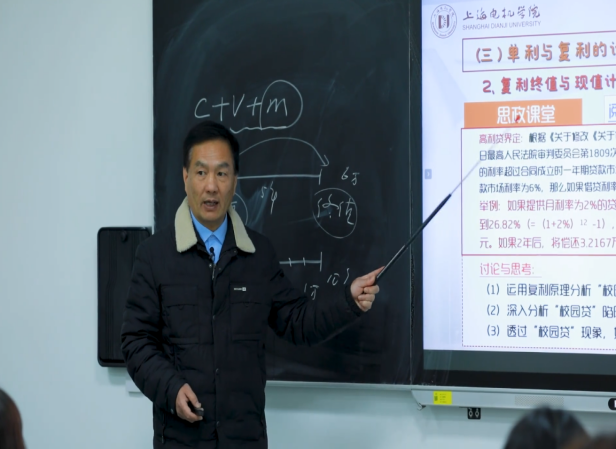 上海电机学院
SHANGHAI DIANJI UNIVERSITY
(三)单利与复利的
2、复利终值与现值计
思政课堂
高利贷界定：根据《关于修改《关于
日最高人民法院审判委员会第1809次
的利率超过合同成立时一年期贷款市
款市场利率为6%，那么如借贷利率
举例：如果提供月利率为2%的贷
到26.82%（=（1+2%）12 -1），
元。如果2年后，将偿还3.2167万
讨论与思考：
(1) 运用复利原理分析“校园
(2) 深入分析“校园贷”陷
(3) 透过“校园贷”现象，
C+V+m
5年
6万